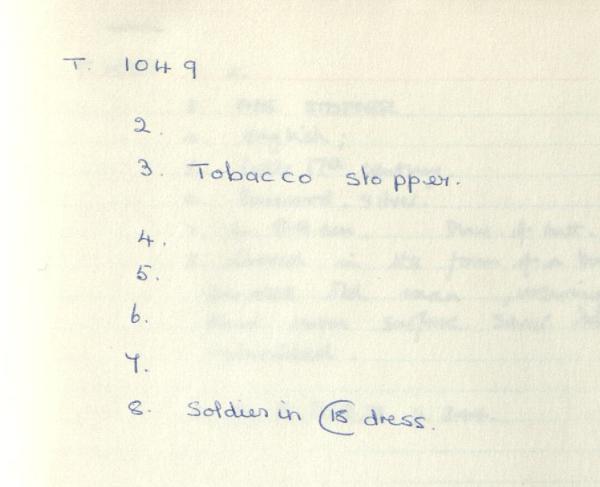 T. 1049
2.
3. Tobacco stopper.
4.
5.
6.
7.
8. Soldier in C18 dress.